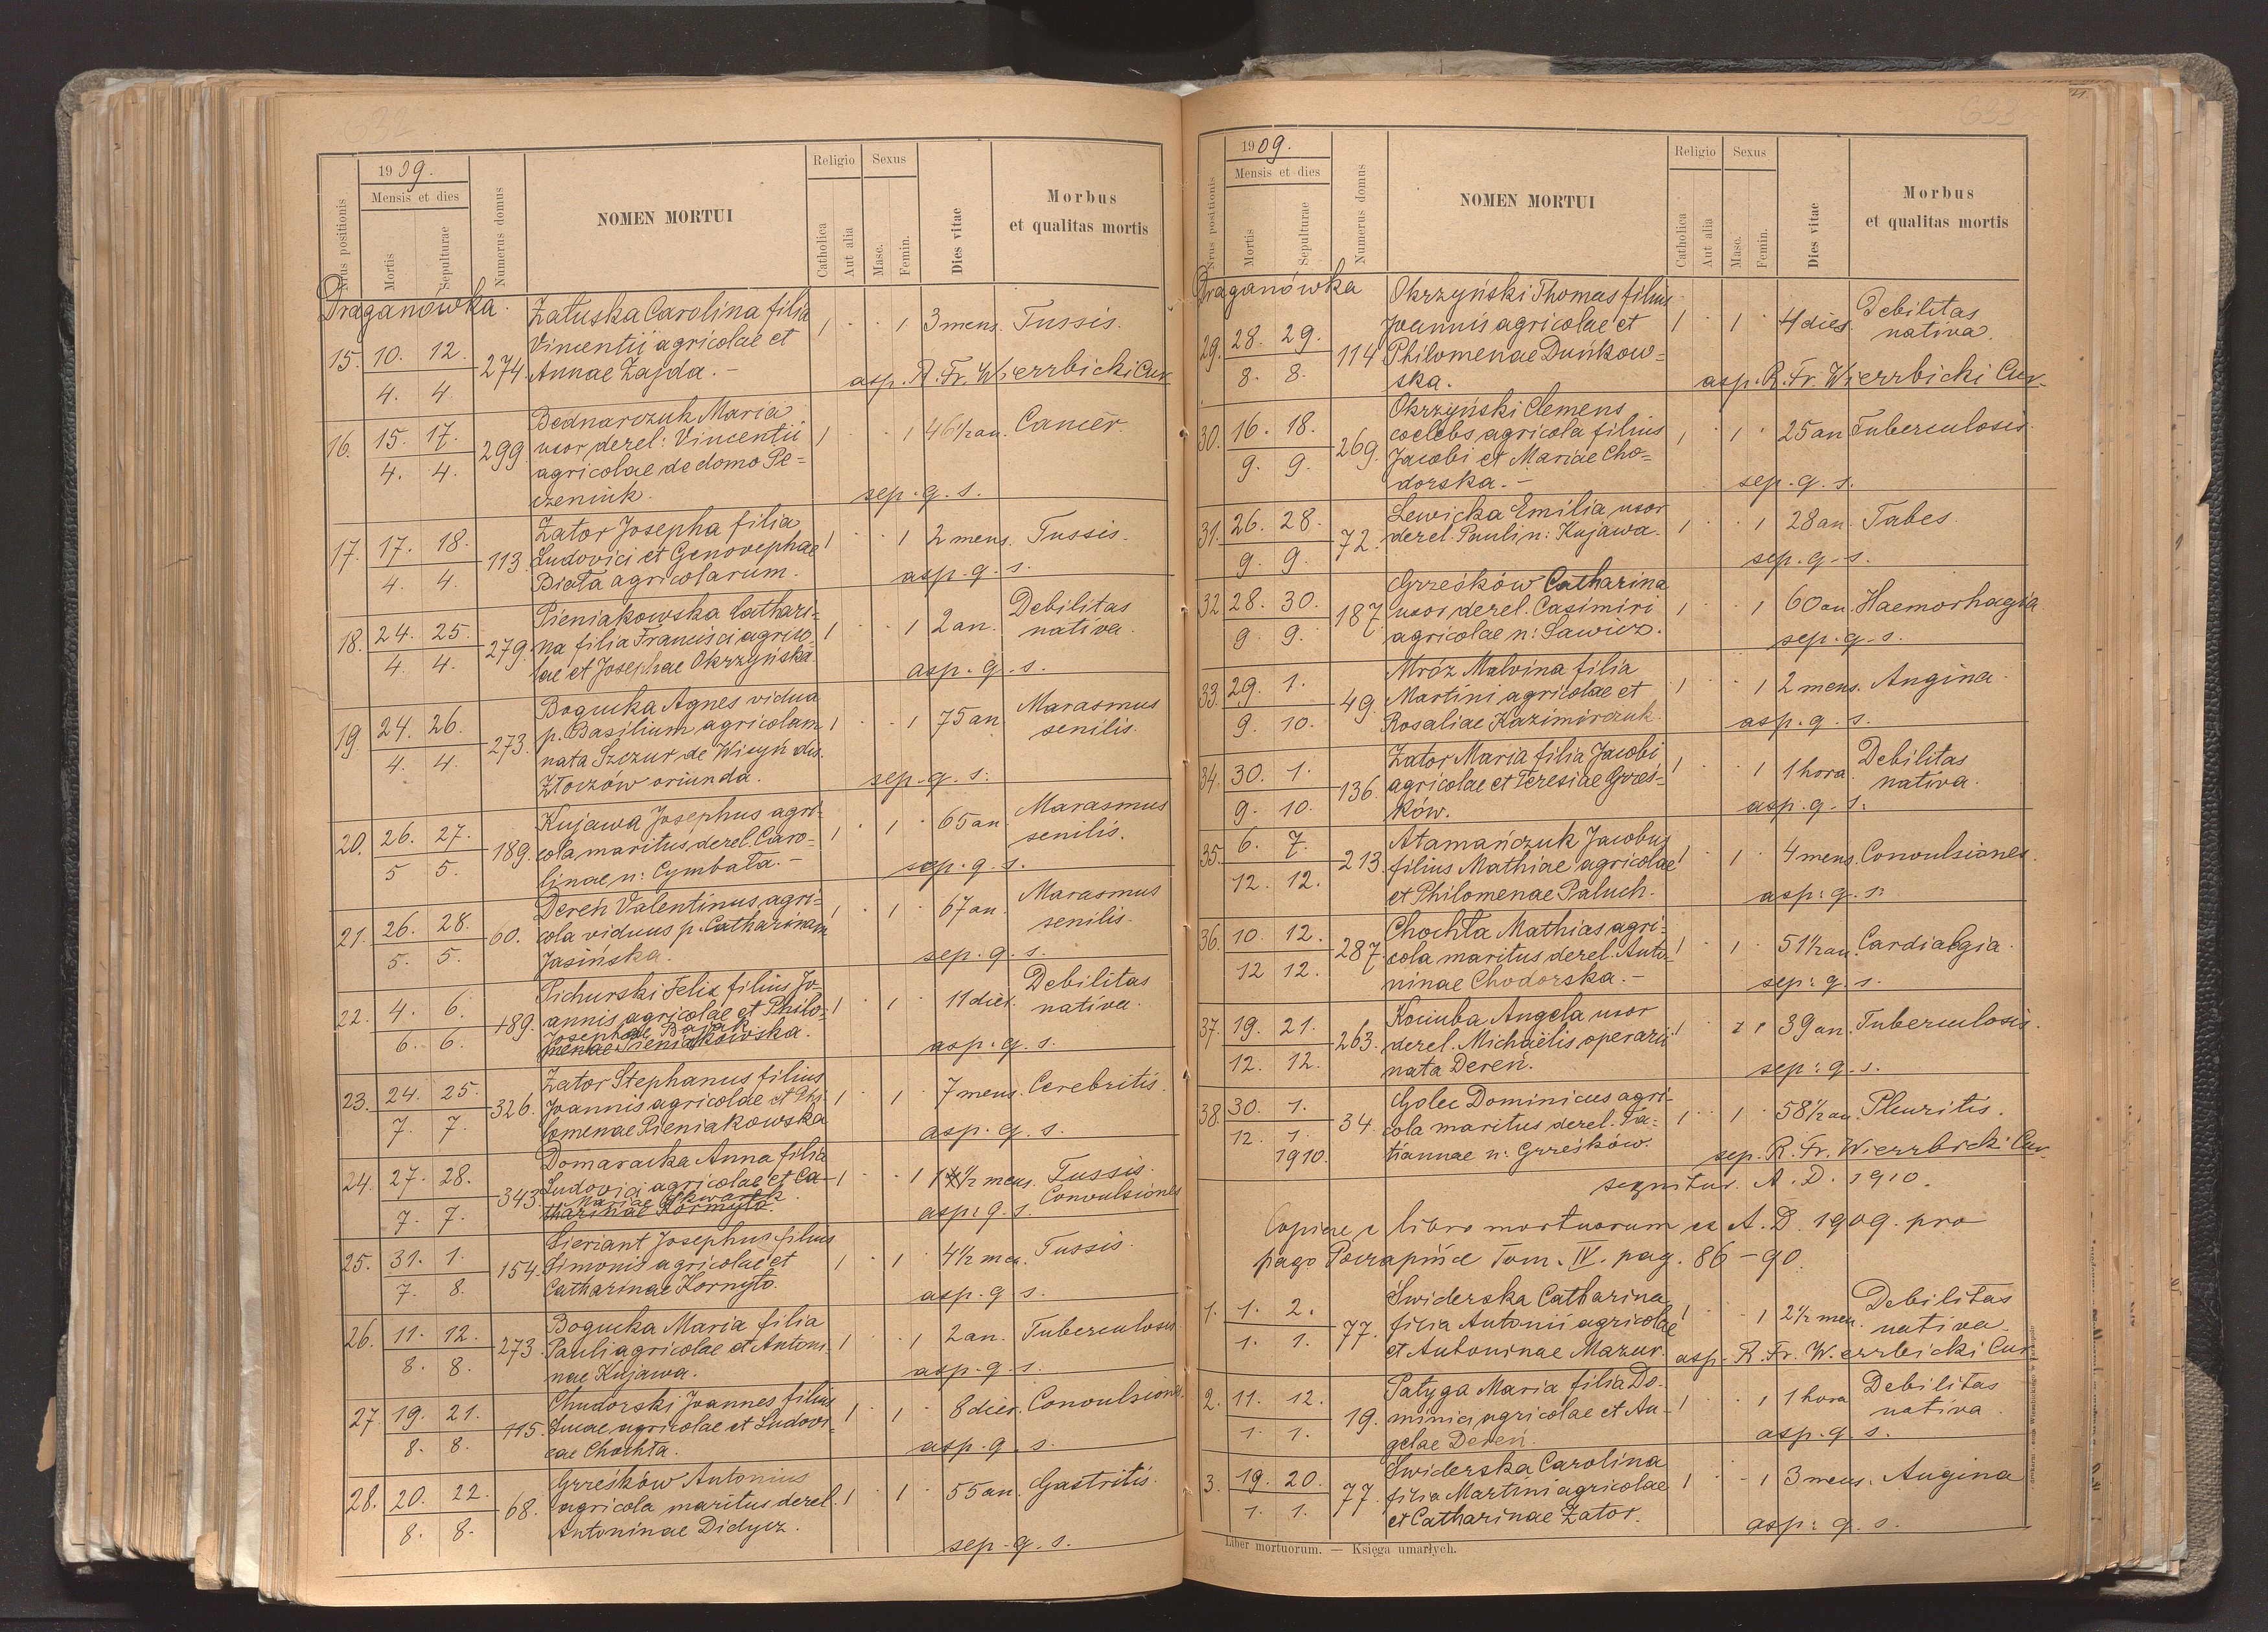 632
1909.
Nrus positionis
Mensis et dies
Mortis
Sepulturae
Numerus domus
NOMEN MORTUI
Religio
Catholica
Aut alia
Sexus
Masc.
Femin.
Dies vitae
Morbus
et qualitas mortis
Draganówka.
15. 10. 12. 4. 4. 274. Załuska Carolina filia 1 · · 1 3 mens. Tussis.
Vincentii agricolae et
Annae Zajda. –
asp. R. Fr. Wierzbicki Cur.
16. 15. 17. 4. 4. 299. Bednarczuk Maria 1 · · 1 46 1/2 an. Cancer.
uxor derel: Vincentii
agricolae de domo Pe=
czeniuk.
sep. q. s.
17. 17. 18. 4. 4. 113. Zator Josepha filia 1 · · 1 2 mens. Tussis.
Ludovici et Genovephae
Biała agricolarum.
asp. q. s.
18. 24. 25. 4. 4. 279. Pieniakowska Cathari= 1 · · 1 2 an. Debilitas
na filia Francisci agrico= nativa.
lae et Josephae Okrzyńska.
asp. q. s.
19. 24. 26. 4. 4. 273. Bogucka Agnes vidua 1 · · 1 75 an Marasmus
p. Basilium agricolam senilis.
nata Szczur de Wicyń dis.
Złoczów oriunda.
sep. q. s.
20. 26. 27. 5 5. 189. Kujawa Josephus agri= 1 · 1 · 65 an Marasmus
cola maritus derel. Caro= senilis.
linae n: Cymbała. –
sep. q. s.
21. 26. 28. 5. 5. 60. Dereń Valentinus agri= 1 · 1 · 67 an. Marasmus
cola viduus p. Catharinam senilis.
Jasińska.
sep. q. s.
22. 4. 6. 6. 6. 189. Pichurski Felix filius Jo= 1 · 1 · 11 dies. Debilitas
annis agricolae et Philo= nativa.
Josephae Bajak
menae Pieniakowska.
asp. q. s.
23. 24. 25. 7. 7. 326. Zator Stephanus filius 1 · 1 · 7 mens. Cerebritis.
Joannis agricolae et Phi=
lomenae Pieniakowska
asp. q. s.
24. 27. 28. 7. 7. 343. Domaracka Anna filia 1 · · 1 1 1/2 mens. Tussis.
Ludovici agricolae et Ca= Convulsiones
Mariae Skwarek
tharinae Kornyło.
asp: q. s.
25. 31. 1. 7. 8. 154. Sieriant Josephus filius 1 · 1 · 4 1/2 men. Tussis.
Simonis agricolae et
Catharinae Kornyło.
asp. q. s.
26. 11. 12. 8. 8. 273. Bogucka Maria filia 1 · · 1 2 an. Tuberculosis
Pauli agricolae et Antoni=
nae Kujawa.
asp. q. s.
27. 19. 21. 8. 8. 115. Chudorski Joannes filius 1 · 1 · 8 dies. Convulsiones.
Lucae agricolae et Ludovi=
cae Chochła.
asp. q. s.
28. 20. 22. 8. 8. 68. Grześków Antonius 1 · 1 · 55 an. Gastritis.
agricola maritus derel.
Antoninae Didycz.
sep. q. s.
633
1909.
Nrus positionis
Mensis et dies
Mortis
Sepulturae
Numerus domus
NOMEN MORTUI
Religio
Catholica
Aut alia
Sexus
Masc.
Femin.
Dies vitae
Morbus
et qualitas mortis
Draganówka
29. 28. 29. 8. 8. 114 Okrzyński Thomas filius 1 · 1 · 4 dies. Debilitas
Joannis agricolae et nativa.
Philomenae Duńkow=
ska.
asp. R. Fr. Wierzbicki Cur.
30. 16. 18. 9. 9. 269. Okrzyński Clemens 1 · 1 · 25 an Tuberculosis.
coelebs agricola filius
Jacobi et Mariae Cho=
dorska. –
sep. q. s.
31. 26. 28. 9. 9. 72. Lewicka Emilia uxor 1 · · 1 28 an. Tabes.
derel. Pauli n: Kujawa.
sep. q. s.
32. 28. 30. 9. 9. 187. Grześków Catharina 1 · · 1 60 an. Haemorhagia.
uxor derel. Casimiri
agricolae n: Sawicz.
sep. q. s.
33. 29. 1. 9. 10. 49. Mróz Malvina filia 1 · · 1 2 mens. Angina.
Martini agricolae et
Rosaliae Kazimirczuk.
asp. q. s.
34. 30. 1. 9. 10. 136. Zator Maria filia Jacobi 1 · · 1 1 hora. Debilitas
agricolae et Teresiae Grześ= nativa.
ków.
asp. q. s.
35. 6. 7. 12. 12. 213. Atamańczuk Jacobus 1 · 1 · 4 mens. Convulsiones.
filius Mathiae agricolae
et Philomenae Paluch.
asp: q. s.
36. 10. 12. 12 12. 287. Chochła Mathias agri= 1 · 1 · 51 1/2 an. Cardialgia.
cola maritus derel. Anto=
ninae Chodorska. –
sep: q. s.
37. 19. 21. 12. 12. 263. Kociuba Angela uxor 1 · · 1 39 an. Tuberculosis.
derel. Michaëlis operarii
nata Dereń.
sep: q. s.
38. 30. 1. 12. 1. 1910. 34. Golec Dominicus agri= 1 · 1 · 58 1/2 an. Pleuritis.
cola maritus derel. Ta=
tiannae n: Grześków.
sep. R. Fr. Wierzbicki Cur.
segnitur. A. D. 1910.
Copiae e libro mortuorum ex A. D. 1909. pro
pago Poczapińce Tom. IV. pag. 86–90.
1. 1. 2. 1. 1. 77. Swiderska Catharina 1 · · 1 2 1/2 men. Debilitas
filia Antonii agricolae nativa.
et Antoninae Mazur.
asp. R. Fr. Wierzbicki Cur
2. 11. 12. 1. 1. 19. Pałyga Maria filia Do= 1 · · 1 1 hora Debilitas
minici agricolae et An= nativa.
gelae Dereń.
asp. q. s.
3. 19. 20. 1. 1. 77. Swiderska Carolina 1 · · 1 3 mens. Angina
filia Martini agricolae
et Catharinae Zator.
asp: q. s.
Liber mortuorum. — Księga umarłych.